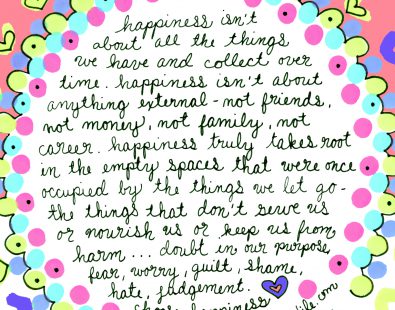 happiness isn't
about all the things
we have and collect over
time. happiness isn't about
anything external - not friends,
not money, not family, not
career. happiness truly takes root
in the empty spaces that were once
occupied by the things we let go -
the things that don't serve us
or nourish us or keep us from
harm... doubt in our purpose,
fear, worry, guilt, shame,
hate, judgement.
happiness